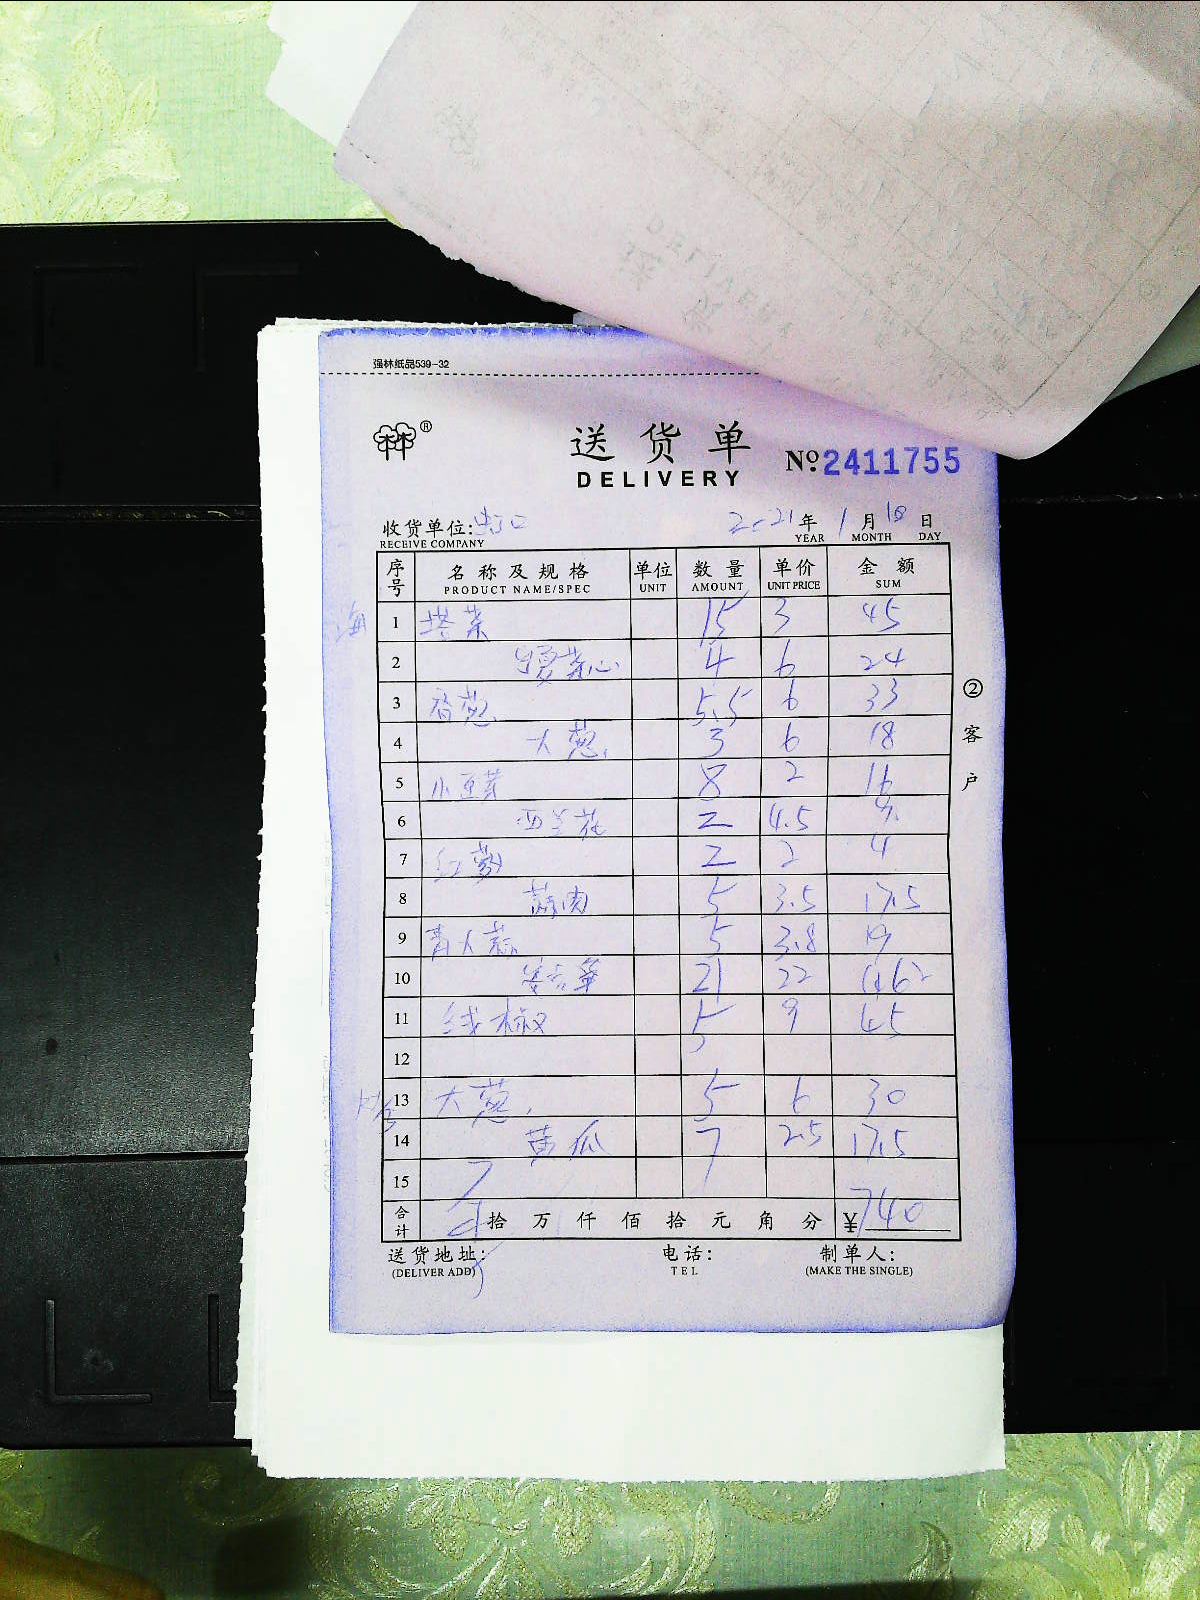 强林纸品539-32
送货单
DELIVERY
№:2411755
收货单位:虹口 2021年1月18日
RECEIVE COMPANY YEAR MONTH DAY
序号 名称及规格 单位 数量 单价 金额
PRODUCT NAME/SPEC UNIT AMOUNT UNIT PRICE SUM
海 1 塔菜 15 3 45
2 宁夏菜心 4 6 24
3 香葱 5.5 6 33
4 大葱 3 6 18
5 小豆芽 8 2 16
6 西兰花 2 4.5 9.
7 2 2 4
8 蒜肉 5 3.5 17.5
9 青大蒜 5 3.8 19
10 21 22 462
11 线椒 5 9 45
12
13 大葱 5 6 30
14 黄瓜 7 2.5 17.5
15
合计 拾万仟佰拾元角分 ¥740
送货地址: 电话: 制单人:
(DELIVER ADD) TEL (MAKE THE SINGLE)
②客户